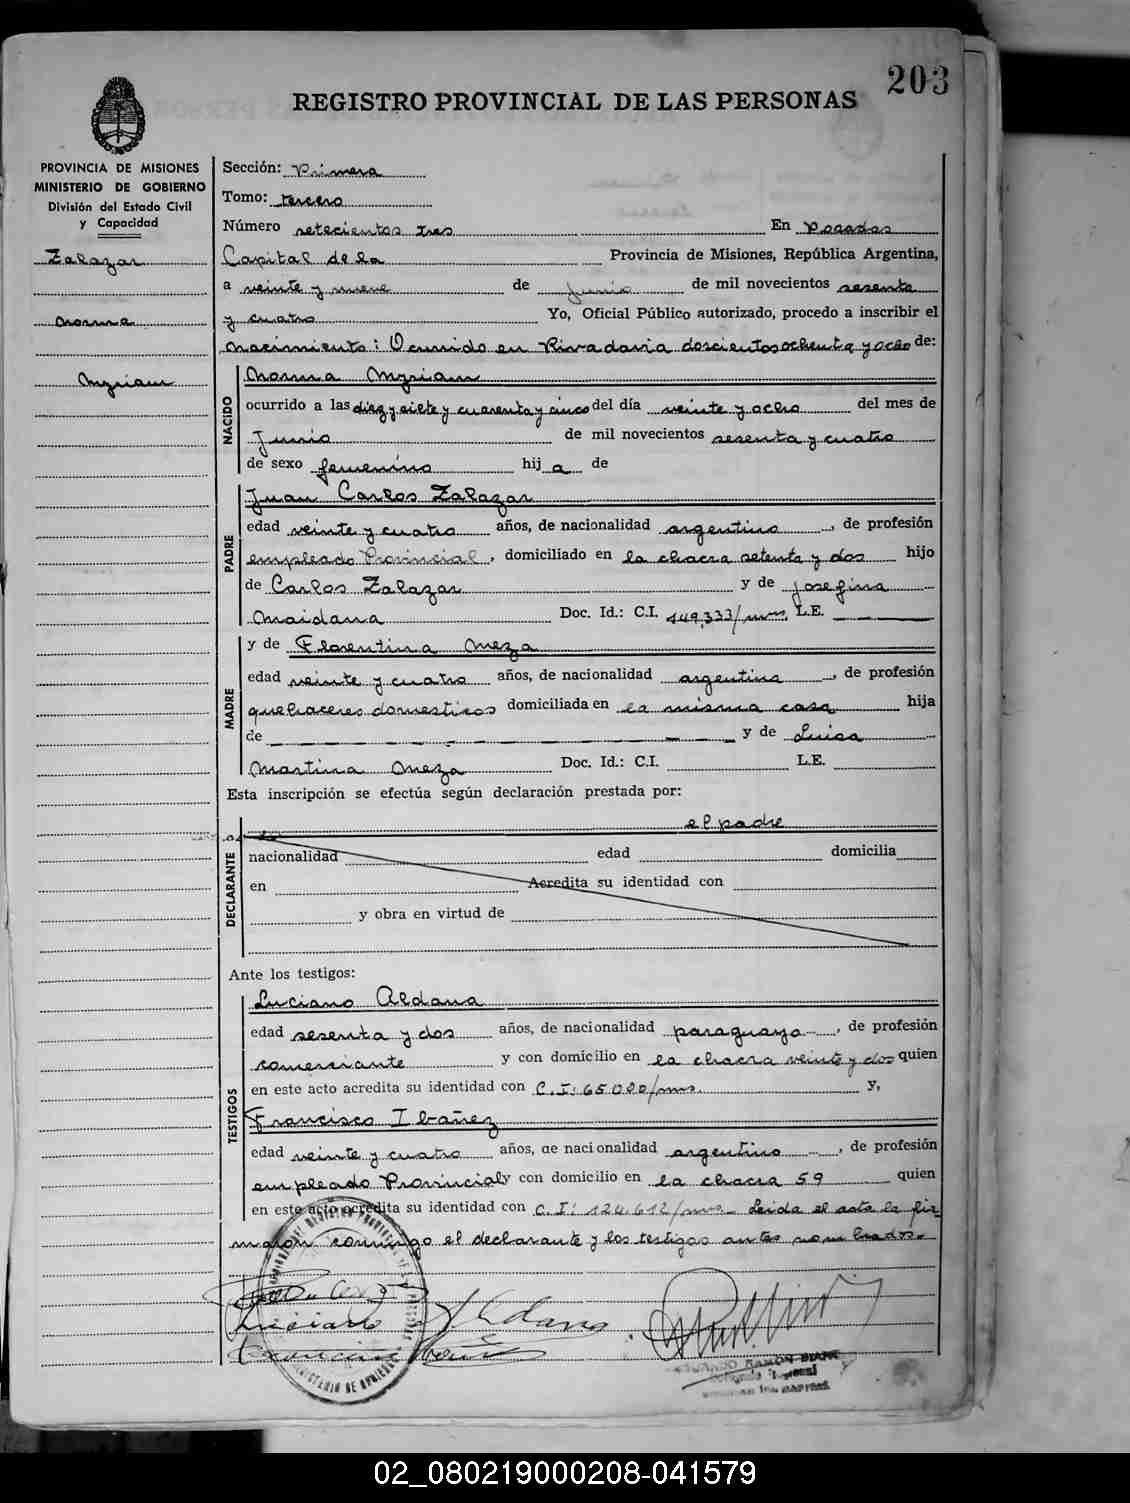 203
REGISTRO PROVINCIAL DE LAS PERSONAS
PROVINCIA DE MISIONES
MINISTERIO DE GOBIERNO
División del Estado Civil
y Capacidad
Zalazar
Norma
Myriam
Sección: Primera
Tomo: tercero
Número setecientos tres En Posadas
Capital de la Provincia de Misiones, República Argentina,
a veinte y nueve de Junio de mil novecientos sesenta
y cuatro Yo, Oficial Público autorizado, procedo a inscribir el
Nacimiento: Ocurrido en Rivadavia doscientos ochenta y ocho de:
NACIDO
Norma Myriam
ocurrido a las diez y siete y cuarenta y cinco del día veinte y ocho del mes de
Junio de mil novecientos sesenta y cuatro
de sexo femenino hij a de
PADRE
Juan Carlos Zalazar
edad veinte y cuatro años, de nacionalidad argentino, de profesión
empleado Provincial, domiciliado en la chacra setenta y dos hijo
de Carlos Zalazar y de Josefina
Maidana Doc. Id.: C.I. 149.333/mns. L.E.
MADRE
y de Florentina Meza
edad veinte y cuatro años, de nacionalidad argentina, de profesión
quehaceres domesticos domiciliada en la misma casa hija
de y de Luisa
Martina Meza Doc. Id.: C.I. L.E.
Esta inscripción se efectúa según declaración prestada por:
el padre
DECLARANTE
nacionalidad edad domicilia
en Acredita su identidad con
y obra en virtud de
Ante los testigos:
TESTIGOS
Luciano Aldana
edad sesenta y dos años, de nacionalidad paraguayo, de profesión
comerciante y con domicilio en la chacra veinte y dos quien
en este acto acredita su identidad con C.I: 65.000/mns. y,
Francisco Ibañez
edad veinte y cuatro años, de nacionalidad argentino, de profesión
empleado Provincial y con domicilio en la chacra 59 quien
en este acto acredita su identidad con C.I: 124.612/mns. Leida el acta la fir-
maron conmigo el declarante y los testigos antes nombrados.-
Luciano Aldana
Francisco Ibañez
RAMÓN
02_080219000208-041579